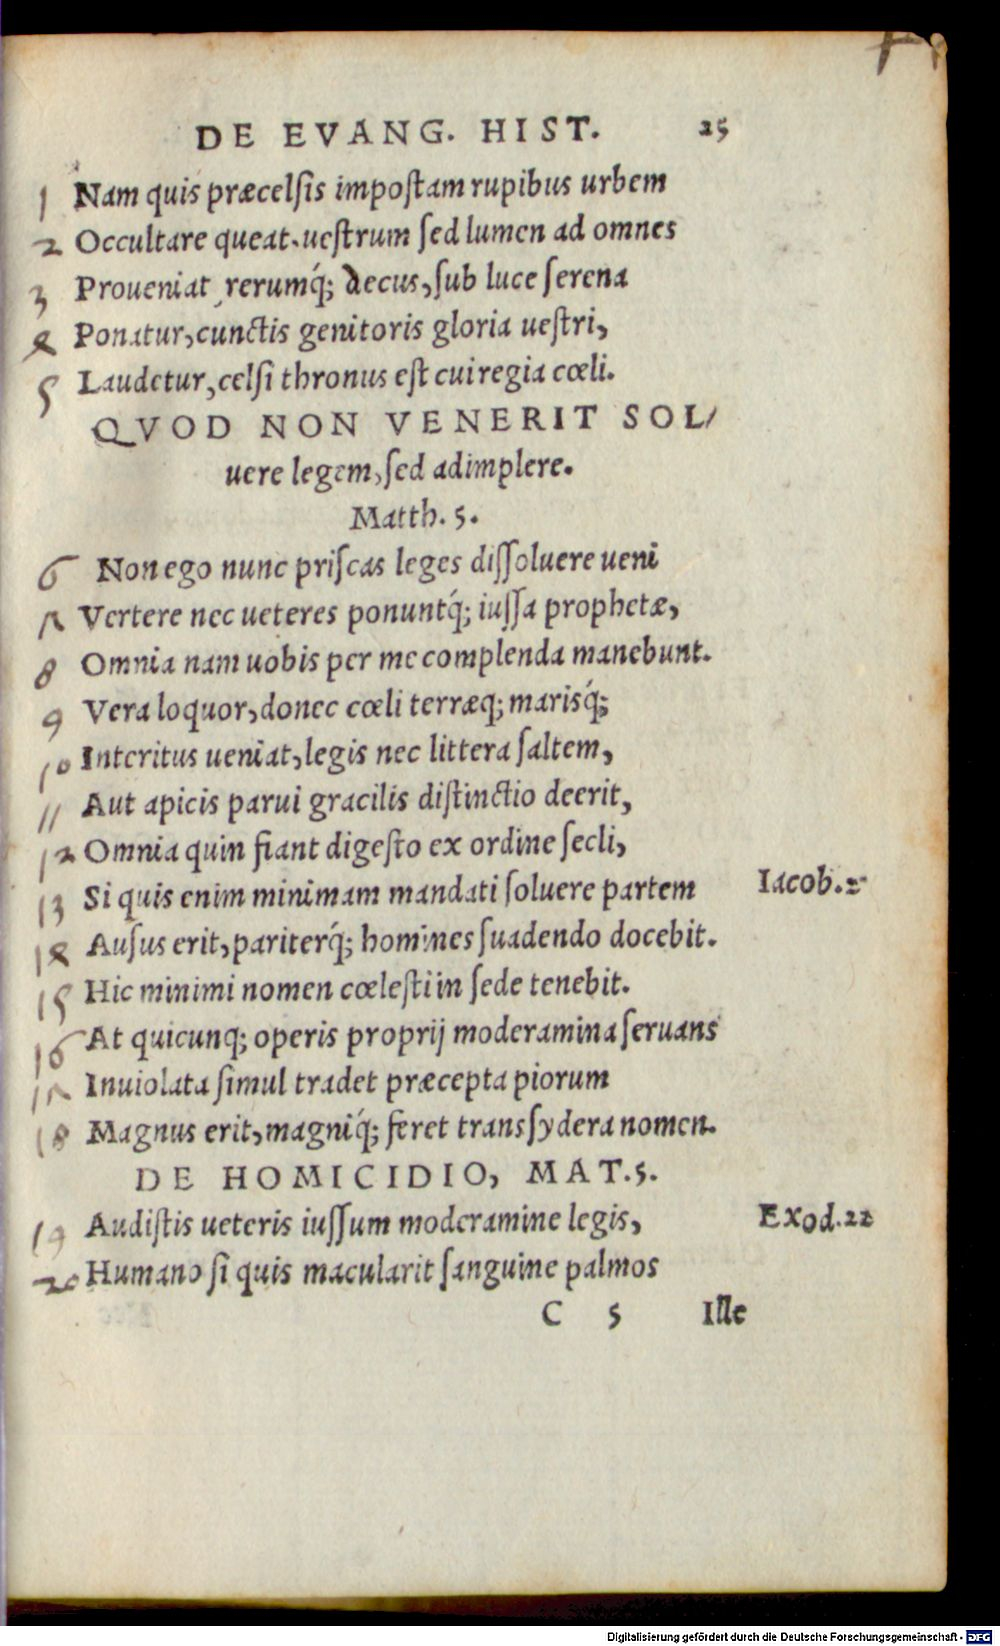 DE EVANG. HIST. 25
1 Nam quis præcelſis impoſtam rupibus urbem
2 Occultare queat. ueſtrum ſed lumen ad omnes
3 Proueniat rerumq́; decus, ſub luce ſerena
4 Ponatur, cunctis genitoris gloria ueſtri,
5 Laudetur, celſi thronus eſt cui regia cœli.
QVOD NON VENERIT SOL/
uere legem, ſed adimplere.
Matth. 5.
6 Non ego nunc priſcas leges diſſoluere ueni
7 Vertere nec ueteres ponuntq́; iuſſa prophetæ,
8 Omnia nam uobis per me complenda manebunt.
9 Vera loquor, donec cœli terræq; marisq́;
10 Interitus ueniat, legis nec littera ſaltem,
11 Aut apicis parui gracilis diſtinctio deerit,
12 Omnia quin fiant digeſto ex ordine ſecli,
13 Si quis enim minimam mandati ſoluere partem Iacob. 2
14 Auſus erit, pariterq́; homines ſuadendo docebit.
15 Hic minimi nomen cœleſti in ſede tenebit.
16 At quicunq; operis proprij moderamina ſeruans
17 Inuiolata ſimul tradet præcepta piorum
18 Magnus erit, magniq́; feret trans ſydera nomen.
DE HOMICIDIO, MAT. 5.
19 Audiſtis ueteris iuſſum moderamine legis, Exod. 22
20 Humano ſi quis macularit ſanguine palmos
C 5 Ille
Digitalisierung gefördert durch die Deutsche Forschungsgemeinschaft - DFG